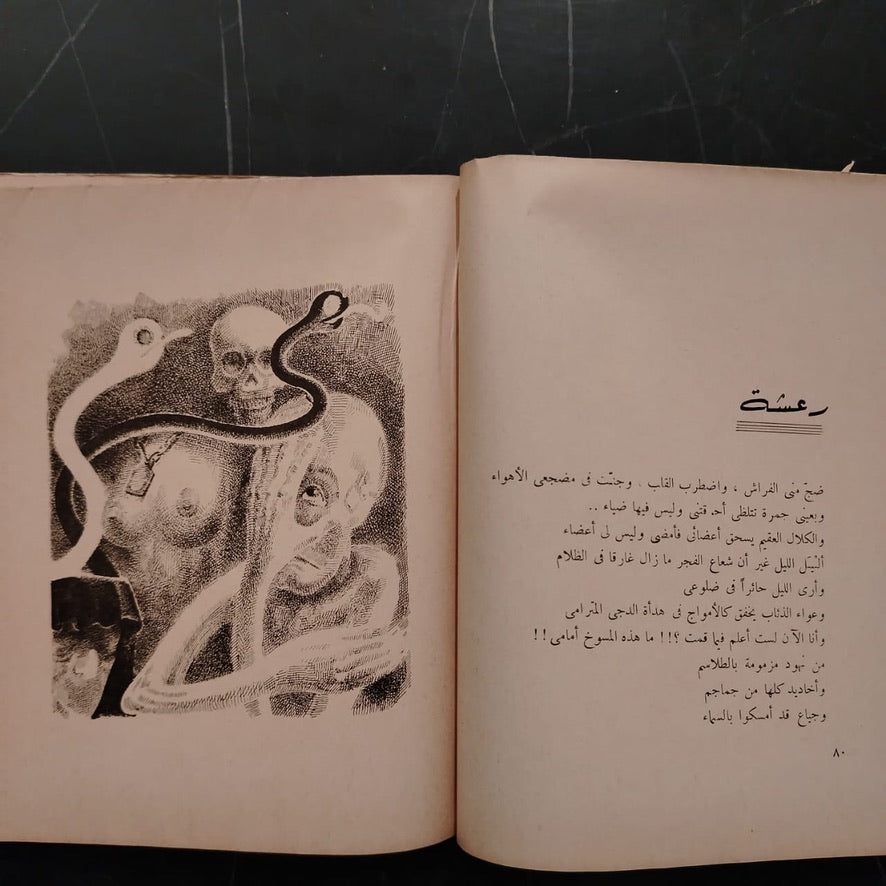 رعشة
ضجّ منى الفراش ، واضطرب القاب . وجنّت فى مضجعى الأهواء
وبعينى جمرة تتلظى أحدقتنى وليس فيها ضياء ..
والكلال العقيم يسحق أعضائى فأمضى وليس لى أعضاء
الليل غير أن شعاع الفجر ما زال غارقا فى الظلام
وأرى الليل حائراً فى ضلوعى
وعواء الذئاب يخفق كالأمواج فى هدأة الدجى المترامى
وأنا الآن لست أعلم فيما قمت ؟!! ما هذه المسوخ أمامى !!
من نهود مزمومة بالطلاسم
وأخاديد كلها من جماجم
وجياع قد أمسكوا بالسماء
٨٠